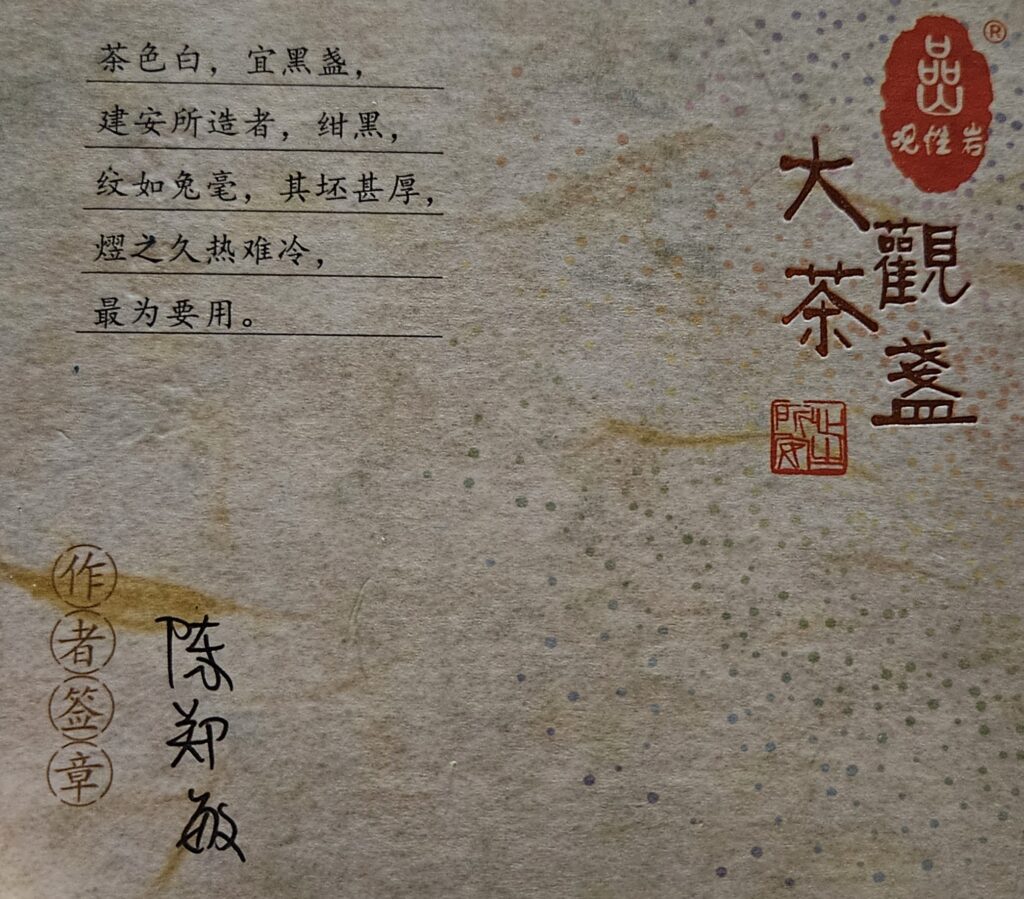 茶色白，宜黑盏，
建安所造者，绀黑，
纹如兔毫，其坯甚厚，
熠之久热难冷，
最为要用。
®
观性岩
大觀茶盏
作者签章
陈郑敏